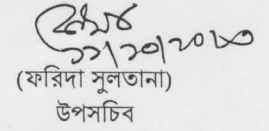 ১১/১০/২০২৩
(ফরিদা সুলতানা)
উপসচিব